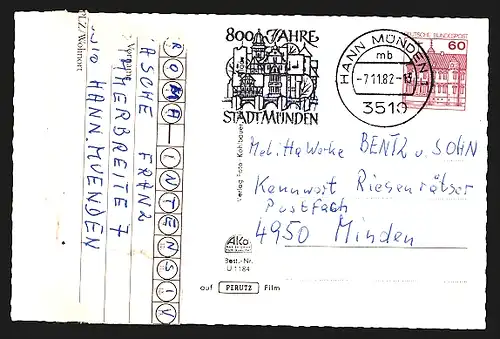 PLZ/Wohnort
Vorname
ROMA-INTENSIV
ASCHE FRANZ
IMMERBREITE 7
3510 HANN. MUENDEN
800 JAHRE
STADT MÜNDEN
HANN MÜNDEN 1
mb
-7.11.82-13
3510
DEUTSCHE BUNDESPOST
60
Melitta Werke BENTZ u. SOHN
Kennwort Riesenrätsel
Postfach
4950 Minden
Verlag Foto Kohlbauer
AKO
Best.-Nr.
U 1184
auf PERUTZ Film